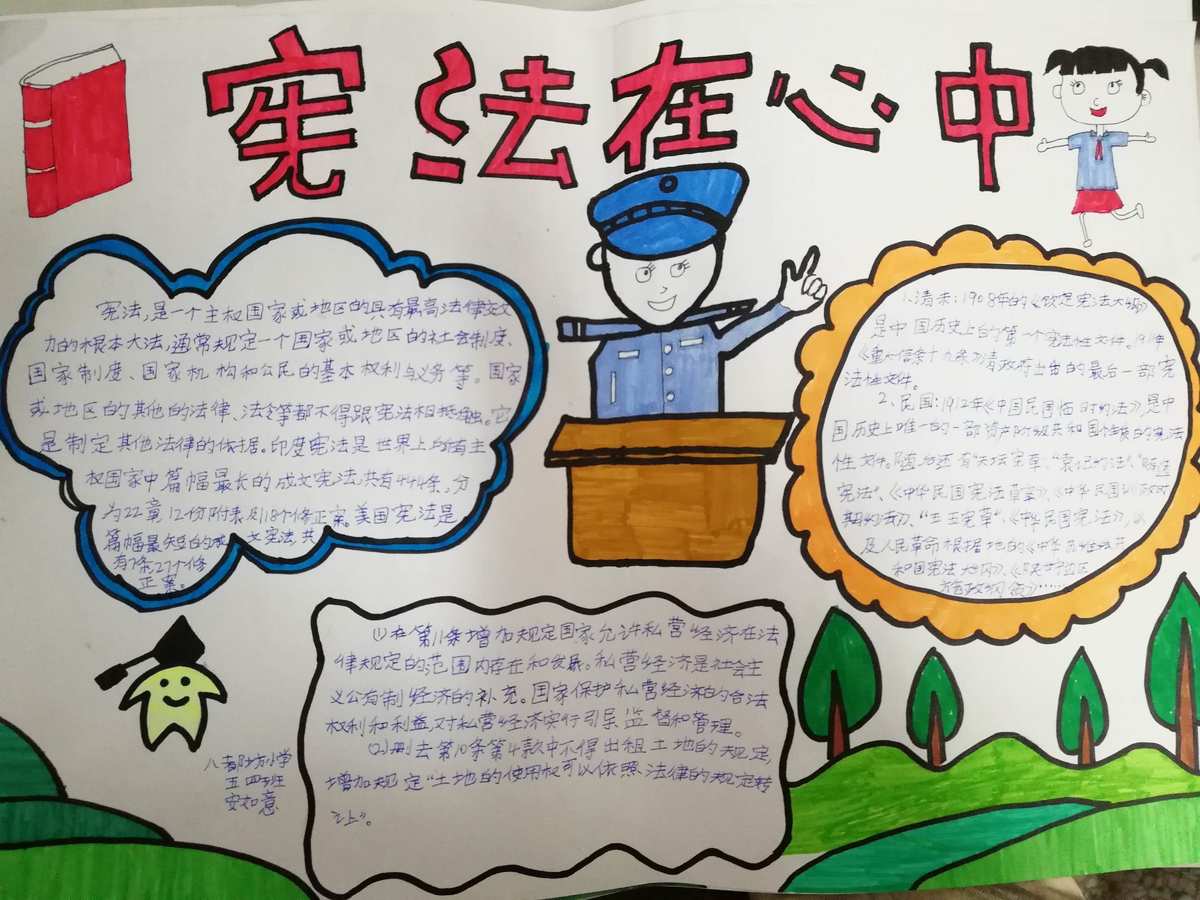 宪法在心中
宪法,是一个主权国家或地区的具有最高法律效
力的根本大法,通常规定一个国家或地区的社会制度、
国家制度、国家机构和公民的基本权利与义务等。国家
或地区的其他的法律、法令等都不得跟宪法相抵触。它
是制定其他法律的依据。印度宪法是世界上所有主
权国家中篇幅最长的成文宪法,共有444条,分
为22章12份附表及118个修正案。美国宪法是
篇幅最短的成文宪法,共
有7条27个修
正案。
1、清末:1908年的《钦定宪法大纲》
是中国历史上的第一个宪法性文件。1911年
《重大信条十九条》清政府出台的最后一部宪
法性文件。
2、民国:1912年《中国民国临时约法》,是中
国历史上唯一的一部资产阶级共和国性质的宪法
性文件。随后还有"天坛宪草"、"袁记约法"、"贿选
宪法"、《中华民国宪法草案》、《中华民国训政时
期约法》、"五五宪草"、《中华民国宪法》,以
及人民革命根据地的《中华苏维埃共
和国宪法大纲》、《陕甘宁边区
施政纲领》……
①在第11条增加规定国家允许私营经济在法
律规定的范围内存在和发展。私营经济是社会主
义公有制经济的补充。国家保护私营经济的合法
权利和利益,对私营经济实行引导监督和管理。
(2)删去第10条第4款中不得出租土地的规定,
增加规定"土地的使用权可以依照法律的规定转
让"。
八青 坊小学
五 四班
安如意